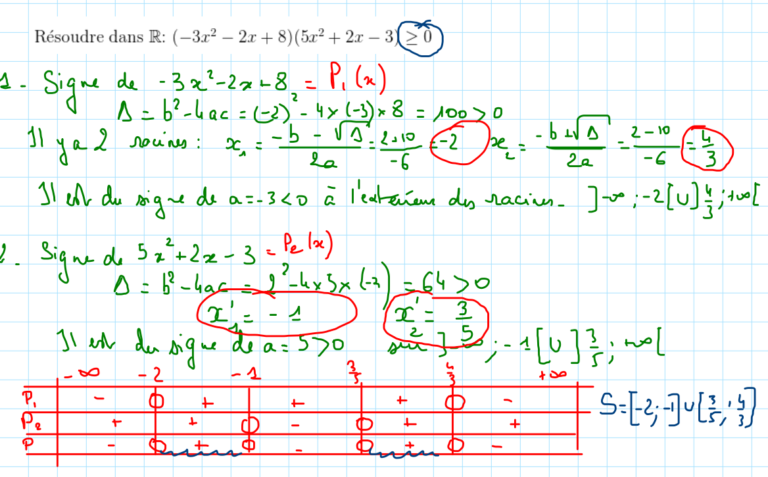 Résoudre dans ℝ: (−3x² − 2x + 8)(5x² + 2x − 3) ≥ 0
1 - Signe de -3x²-2x+8 = P₁(x)
Δ = b²-4ac = (-2)² - 4×(-3)×8 = 100 > 0
Il y a 2 racines : x₁ = (-b - √Δ)/2a = (2+10)/-6 = -2 x₂ = (-b+√Δ)/2a = (2-10)/-6 = 4/3
Il est du signe de a=-3<0 à l'extérieur des racines - ]-∞ ; -2[ U ]4/3 ; +∞[
2 - Signe de 5x²+2x-3 = P₂(x)
Δ = b²-4ac = 2²-4×5×(-3) = 64 > 0
x'₁ = -1 x'₂ = 3/5
Il est du signe de a=5>0 sur ]-∞ ; -1[ U ]3/5 ; +∞[
-∞ -2 -1 3/5 4/3 +∞
P₁ - 0 + + + 0 -
P₂ + + 0 - 0 + +
P - 0 + 0 - 0 + 0 -
S = [-2 ; -1] U [3/5 ; 4/3]